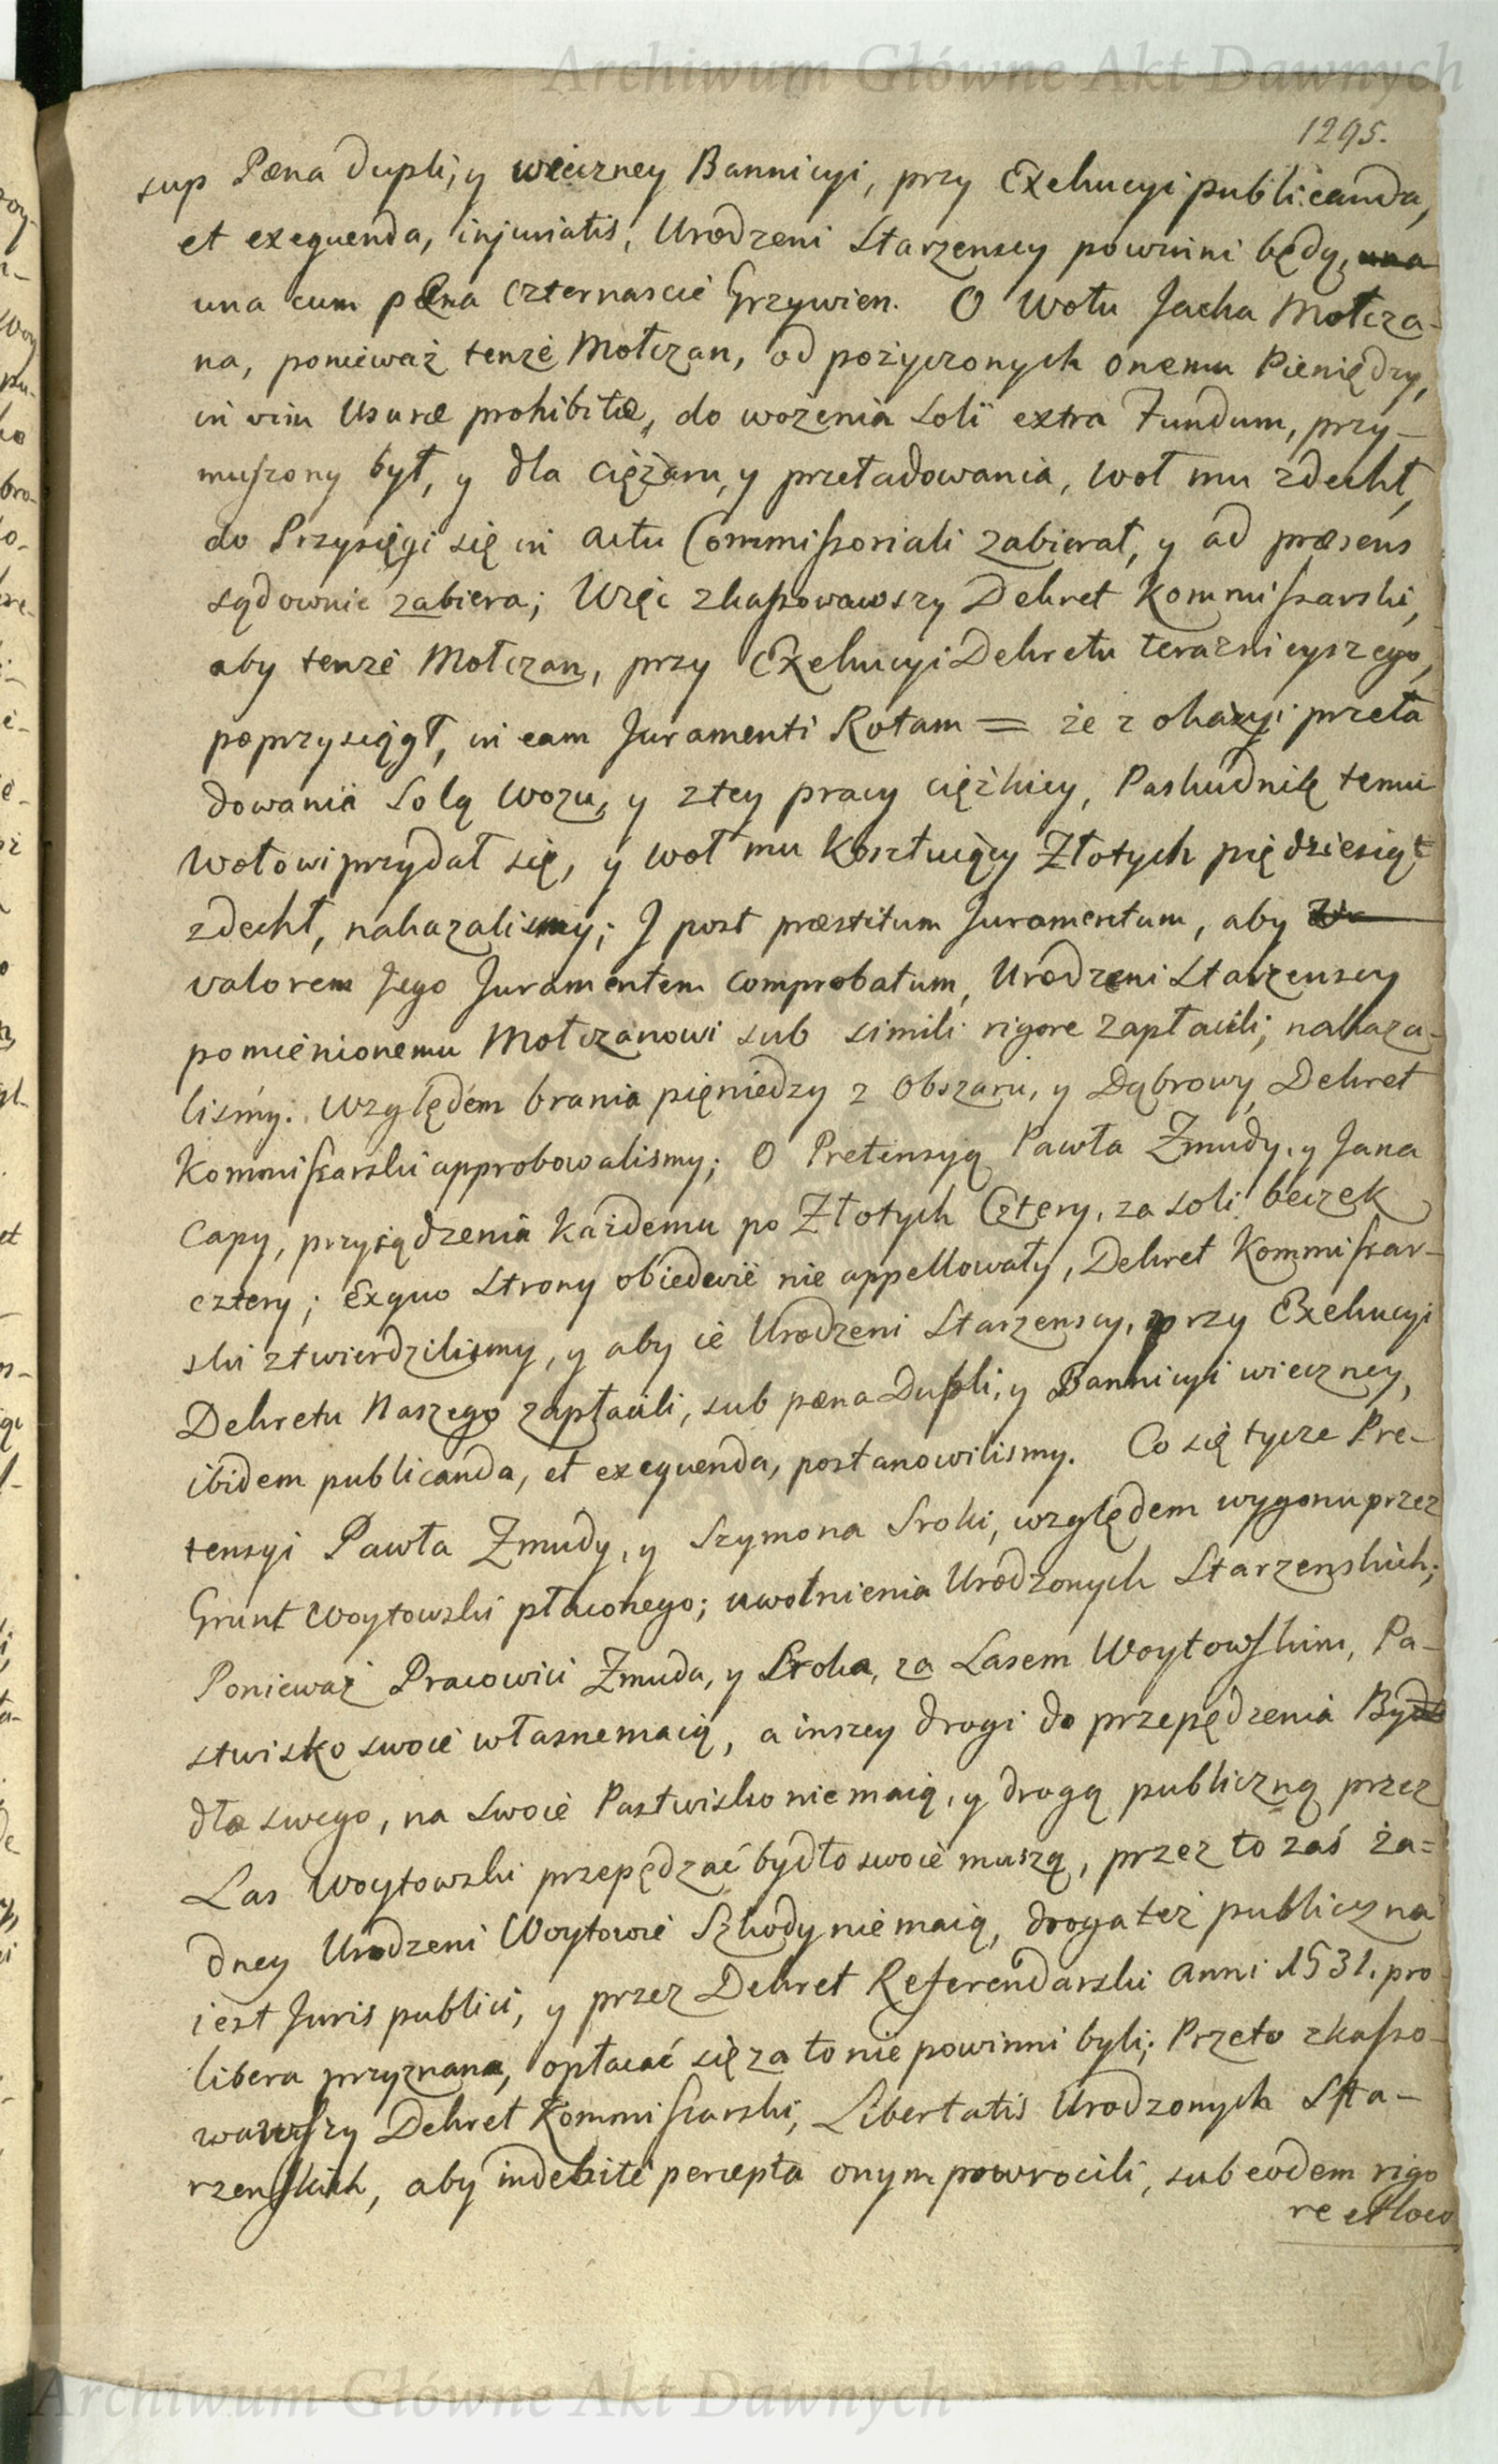 Archiwum Główne Akt Dawnych
1295.
sup Pæna dupli, y wieczney Bannicyi, przy Exekucyi publicanda,
et exequenda, injuriatis, Urodzeni Starzenscy powinni będą, una
una cum pæna czternascie Grzywien. O Wołu Jacka Mołcza-
na, ponieważ tenże Mołczan, od pożyczonych onemu Pieniędzy,
in vim Usuræ prohibitæ, do wożenia Soli extra Fundum, przy-
muszony był, y dla ciężaru, y przeładowania, woł mu zdechł,
do Przysięgi się in actu Commissoriali zabierał, y ad præsens
sądownie zabiera; Więc zkassowawszy Dekret Kommissarski,
aby tenże Mołczan, przy Exekucyi Dekretu teraznieyszego,
poprzysiągł, in eam Juramenti Rotam = że z okazyi przeła
dowania Solą Wozu, y z tey pracy ciężkiey, Paskudnik temu
Wołowi przydał się, y woł mu kosztuiący Złotych pięćdziesiąt
zdechł, nakazalismy; I post præstitum Juramentum, aby
valorem Jego Juramentem comprobatum, Urodzeni Starzenscy
pomienionemu Mołczanowi sub simili rigore zapłacili, nakaza-
liśmy. Względem brania pięniedzy z Obszaru, y Dąbrowy, Dekret
Kommissarski approbowalismy; O Pretensyą Pawła Zmudy, y Jana
Capy, przysądzenia każdemu po Złotych Cztery, za soli beczek
cztery; Exquo Strony obiedwie nie appellowały, Dekret Kommissar-
ski ztwierdzilismy, y aby ie Urodzeni Starzenscy, przy Exekucyi
Dekretu Naszego zapłacili, sub pæna Dupli, y Bannicyi wieczney,
ibidem publicanda, et exequenda, postanowilismy. Co się tycze Pre-
tensyi Pawła Zmudy, y Szymona Sroki, względem wygonu przez
Grunt Woytowski płaconego; uwolnienia Urodzonych Starzenskich;
Ponieważ Pracowici Zmuda, y Sroka, za Lasem Woytowskim, Pa-
stwisko swoie własne maią, a inszey drogi do przepędzenia By
dła swego, na swoie Pastwisko nie maią, y drogą publiczną przez
Las Woytowski przepędzać bydło swoie muszą, przez to zaś ża=
dney Urodzeni Woytowie Szkody nie maią, droga też publiczna
iest Juris publici, y przez Dekret Referendarski Anni 1531. pro
libera przyznana, opłacać się za to nie powinni byli; Przeto zkasso-
wawszy Dekret Kommissarski, Libertatis Urodzonych Sta-
rzenskich, aby indebite percepta onym powrocili, sub eodem rigo
re et loco
Archiwum Główne Akt Dawnych